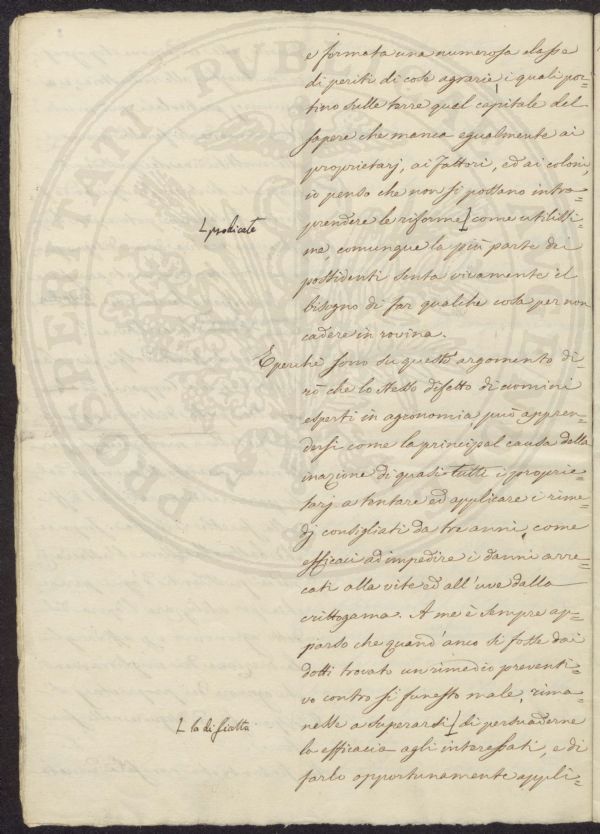 e formata una numerosa classe
di periti di cose agrarie, i quali por=
tino sulle terre quel capitale del
sapere che manca egualmente ai
proprietarj, ai Fattori, ed ai coloni,
io penso che non si possano intra=
prendere le riforme ⌊ come utilissi=
⌊ predicate
me, comunque la più parte dei
possidenti senta vivamente il
bisogno di far qualche cosa per non
cadere in rovina.
E perchè sono su questo argomento di=
rò che lo stesso difetto di uomini
esperti in agronomia, può appren=
dersi come la principal causa della
inazione di quasi tutti i proprie=
tarj a tentare ed applicare i rime=
dj consigliati da tre anni, come
efficaci ad impedire i danni arre=
cati alla vite ed all'uve dalla
crittogama. A me è sempre ap=
parso che quand'anco si fosse dai
dotti trovato un rimedio preventi=
vo contro sì funesto male, rima=
nesse a superarsi ⌊ di persuaderne
⌊ la difficoltà
la efficacia agli interessati, e di
farlo opportunamente appli=
PROSPERITATI PVBLICAE